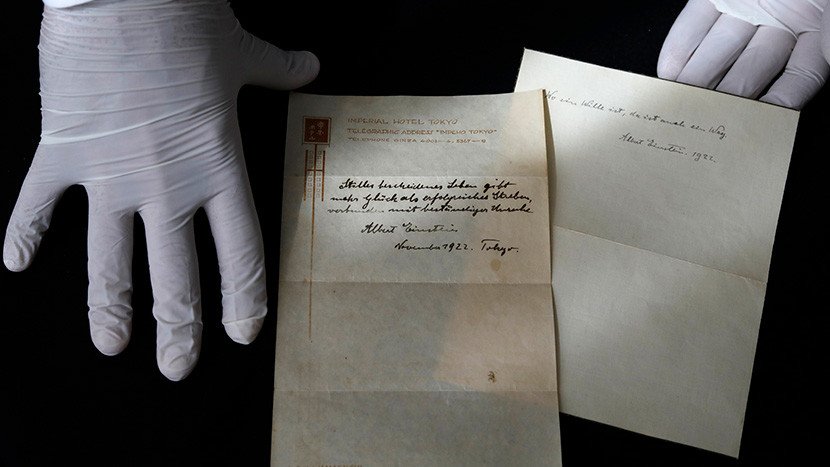 IMPERIAL HOTEL TOKYO
TELEGRAPHIC ADDRESS "IMPEHO TOKYO"
TELEPHONE GINZA
Stilles bescheidenes Leben gibt
mehr Glück als erfolgreiches Streben,
verbunden mit beständiger Unruhe.
Albert Einstein.
November 1922. Tokyo.
Wo ein Wille ist, da ist auch ein Weg.
Albert Einstein. 1922.